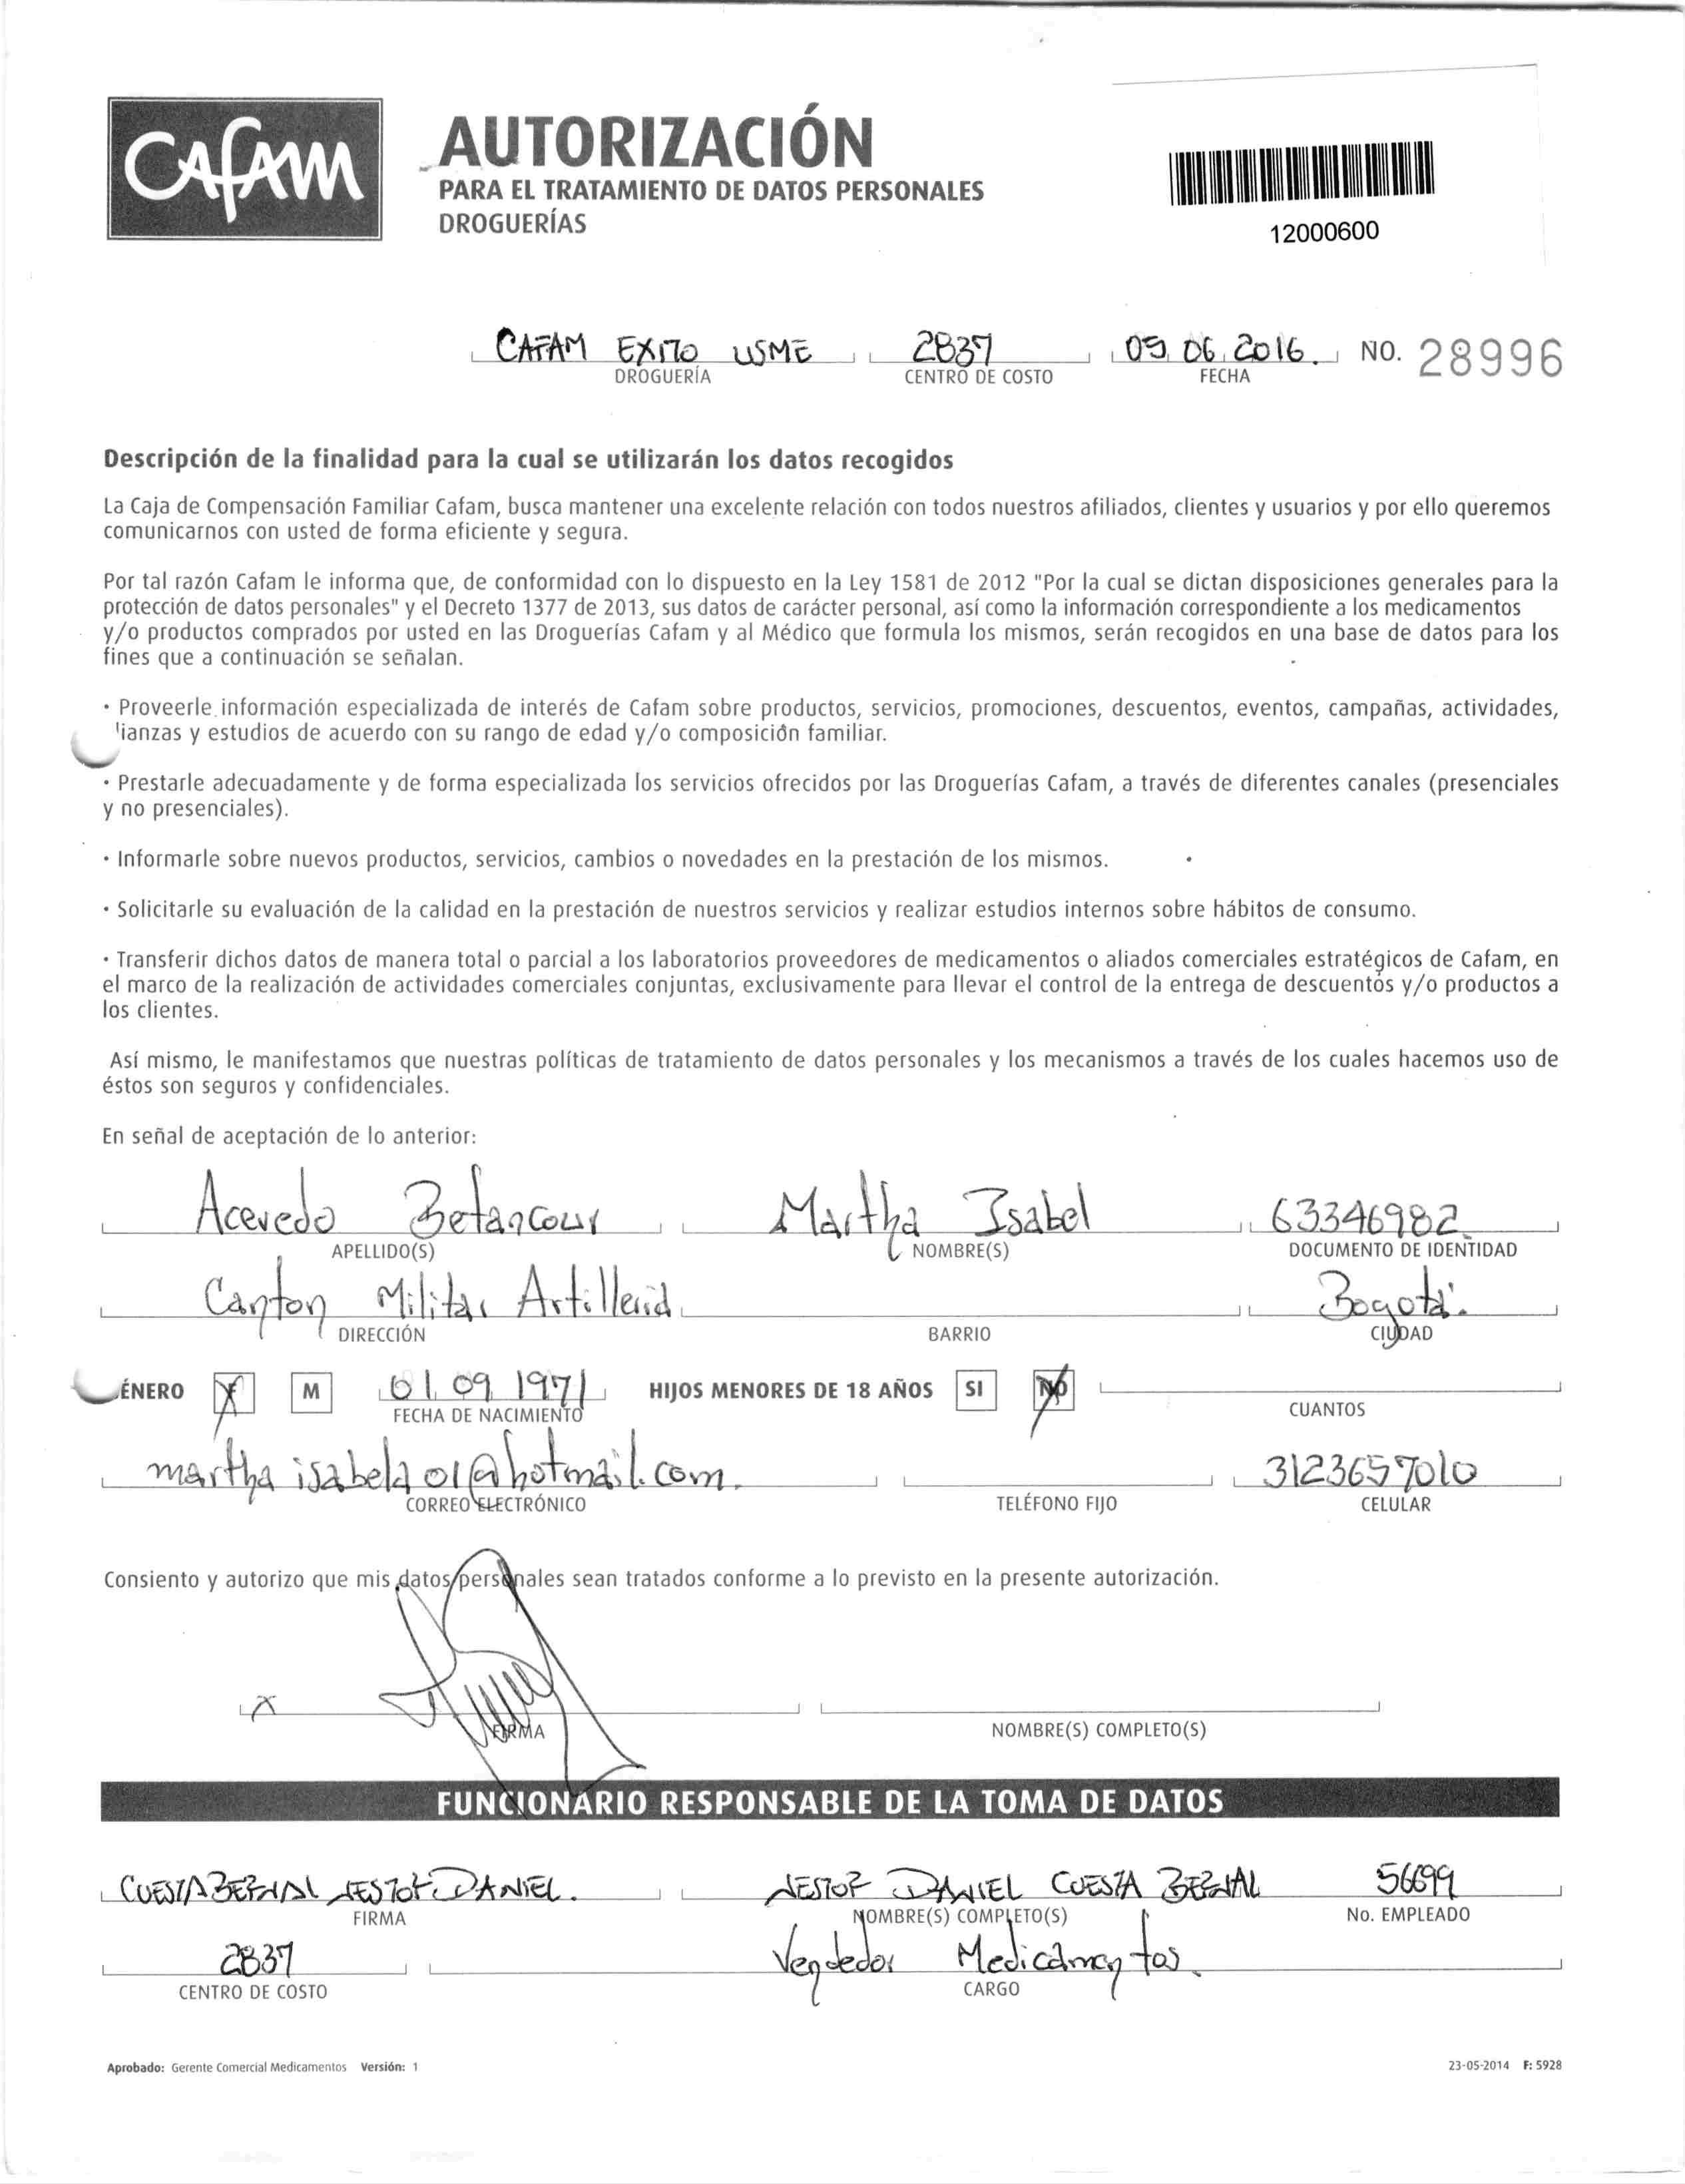 CAFAM
AUTORIZACIÓN
PARA EL TRATAMIENTO DE DATOS PERSONALES
DROGUERÍAS
12000600
CAFAM EXITO USME 2837 05 06 2016. NO. 28996
DROGUERÍA CENTRO DE COSTO FECHA
Descripción de la finalidad para la cual se utilizarán los datos recogidos
La Caja de Compensación Familiar Cafam, busca mantener una excelente relación con todos nuestros afiliados, clientes y usuarios y por ello queremos
comunicarnos con usted de forma eficiente y segura.
Por tal razón Cafam le informa que, de conformidad con lo dispuesto en la Ley 1581 de 2012 "Por la cual se dictan disposiciones generales para la
protección de datos personales" y el Decreto 1377 de 2013, sus datos de carácter personal, así como la información correspondiente a los medicamentos
y/o productos comprados por usted en las Droguerías Cafam y al Médico que formula los mismos, serán recogidos en una base de datos para los
fines que a continuación se señalan.
• Proveerle información especializada de interés de Cafam sobre productos, servicios, promociones, descuentos, eventos, campañas, actividades,
lianzas y estudios de acuerdo con su rango de edad y/o composición familiar.
• Prestarle adecuadamente y de forma especializada los servicios ofrecidos por las Droguerías Cafam, a través de diferentes canales (presenciales
y no presenciales).
• Informarle sobre nuevos productos, servicios, cambios o novedades en la prestación de los mismos.
• Solicitarle su evaluación de la calidad en la prestación de nuestros servicios y realizar estudios internos sobre hábitos de consumo.
• Transferir dichos datos de manera total o parcial a los laboratorios proveedores de medicamentos o aliados comerciales estratégicos de Cafam, en
el marco de la realización de actividades comerciales conjuntas, exclusivamente para llevar el control de la entrega de descuentos y/o productos a
los clientes.
Así mismo, le manifestamos que nuestras políticas de tratamiento de datos personales y los mecanismos a través de los cuales hacemos uso de
éstos son seguros y confidenciales.
En señal de aceptación de lo anterior:
Acevedo Betancour Martha Isabel 63346982
APELLIDO(S) NOMBRE(S) DOCUMENTO DE IDENTIDAD
Canton Militar Artilleria Bogotá.
DIRECCIÓN BARRIO CIUDAD
ÉNERO F M 01 09 1971 HIJOS MENORES DE 18 AÑOS SI NO
FECHA DE NACIMIENTO CUANTOS
martha isabela01@hotmail.com. 3123657010
CORREO ELECTRÓNICO TELÉFONO FIJO CELULAR
Consiento y autorizo que mis datos personales sean tratados conforme a lo previsto en la presente autorización.
X
FIRMA NOMBRE(S) COMPLETO(S)
FUNCIONARIO RESPONSABLE DE LA TOMA DE DATOS
CUESTA BERNAL NESTOR DANIEL. NESTOR DANIEL CUESTA BERNAL 56699
FIRMA NOMBRE(S) COMPLETO(S) No. EMPLEADO
2837 Vendedor Medicamentos.
CENTRO DE COSTO CARGO
Aprobado: Gerente Comercial Medicamentos Versión: 1 23-05-2014 F: 5928